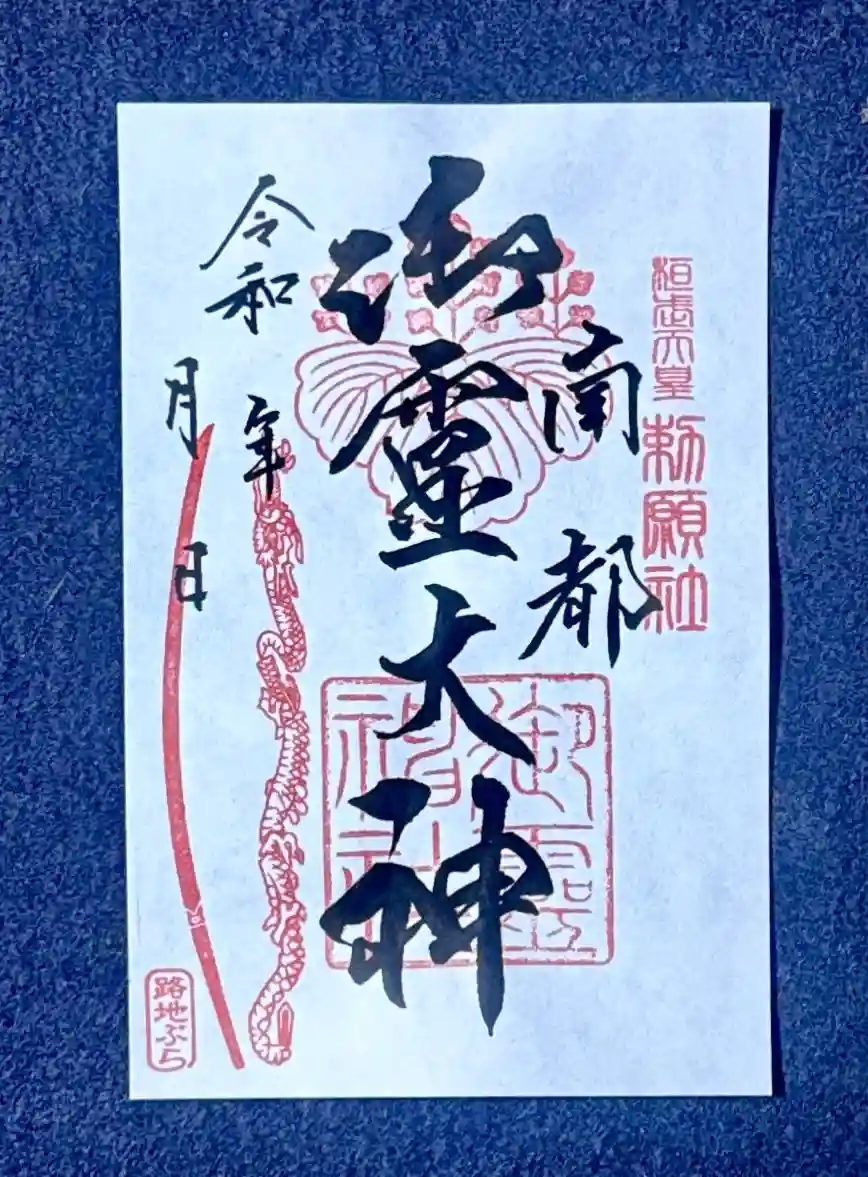 桓武天皇
勅願社
南都
御靈大神
御霊
神社
令和
年
月
日
路地ぶら